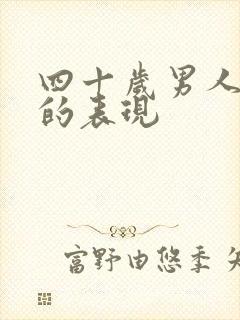 四十歲男人
的表現
富野由悠季